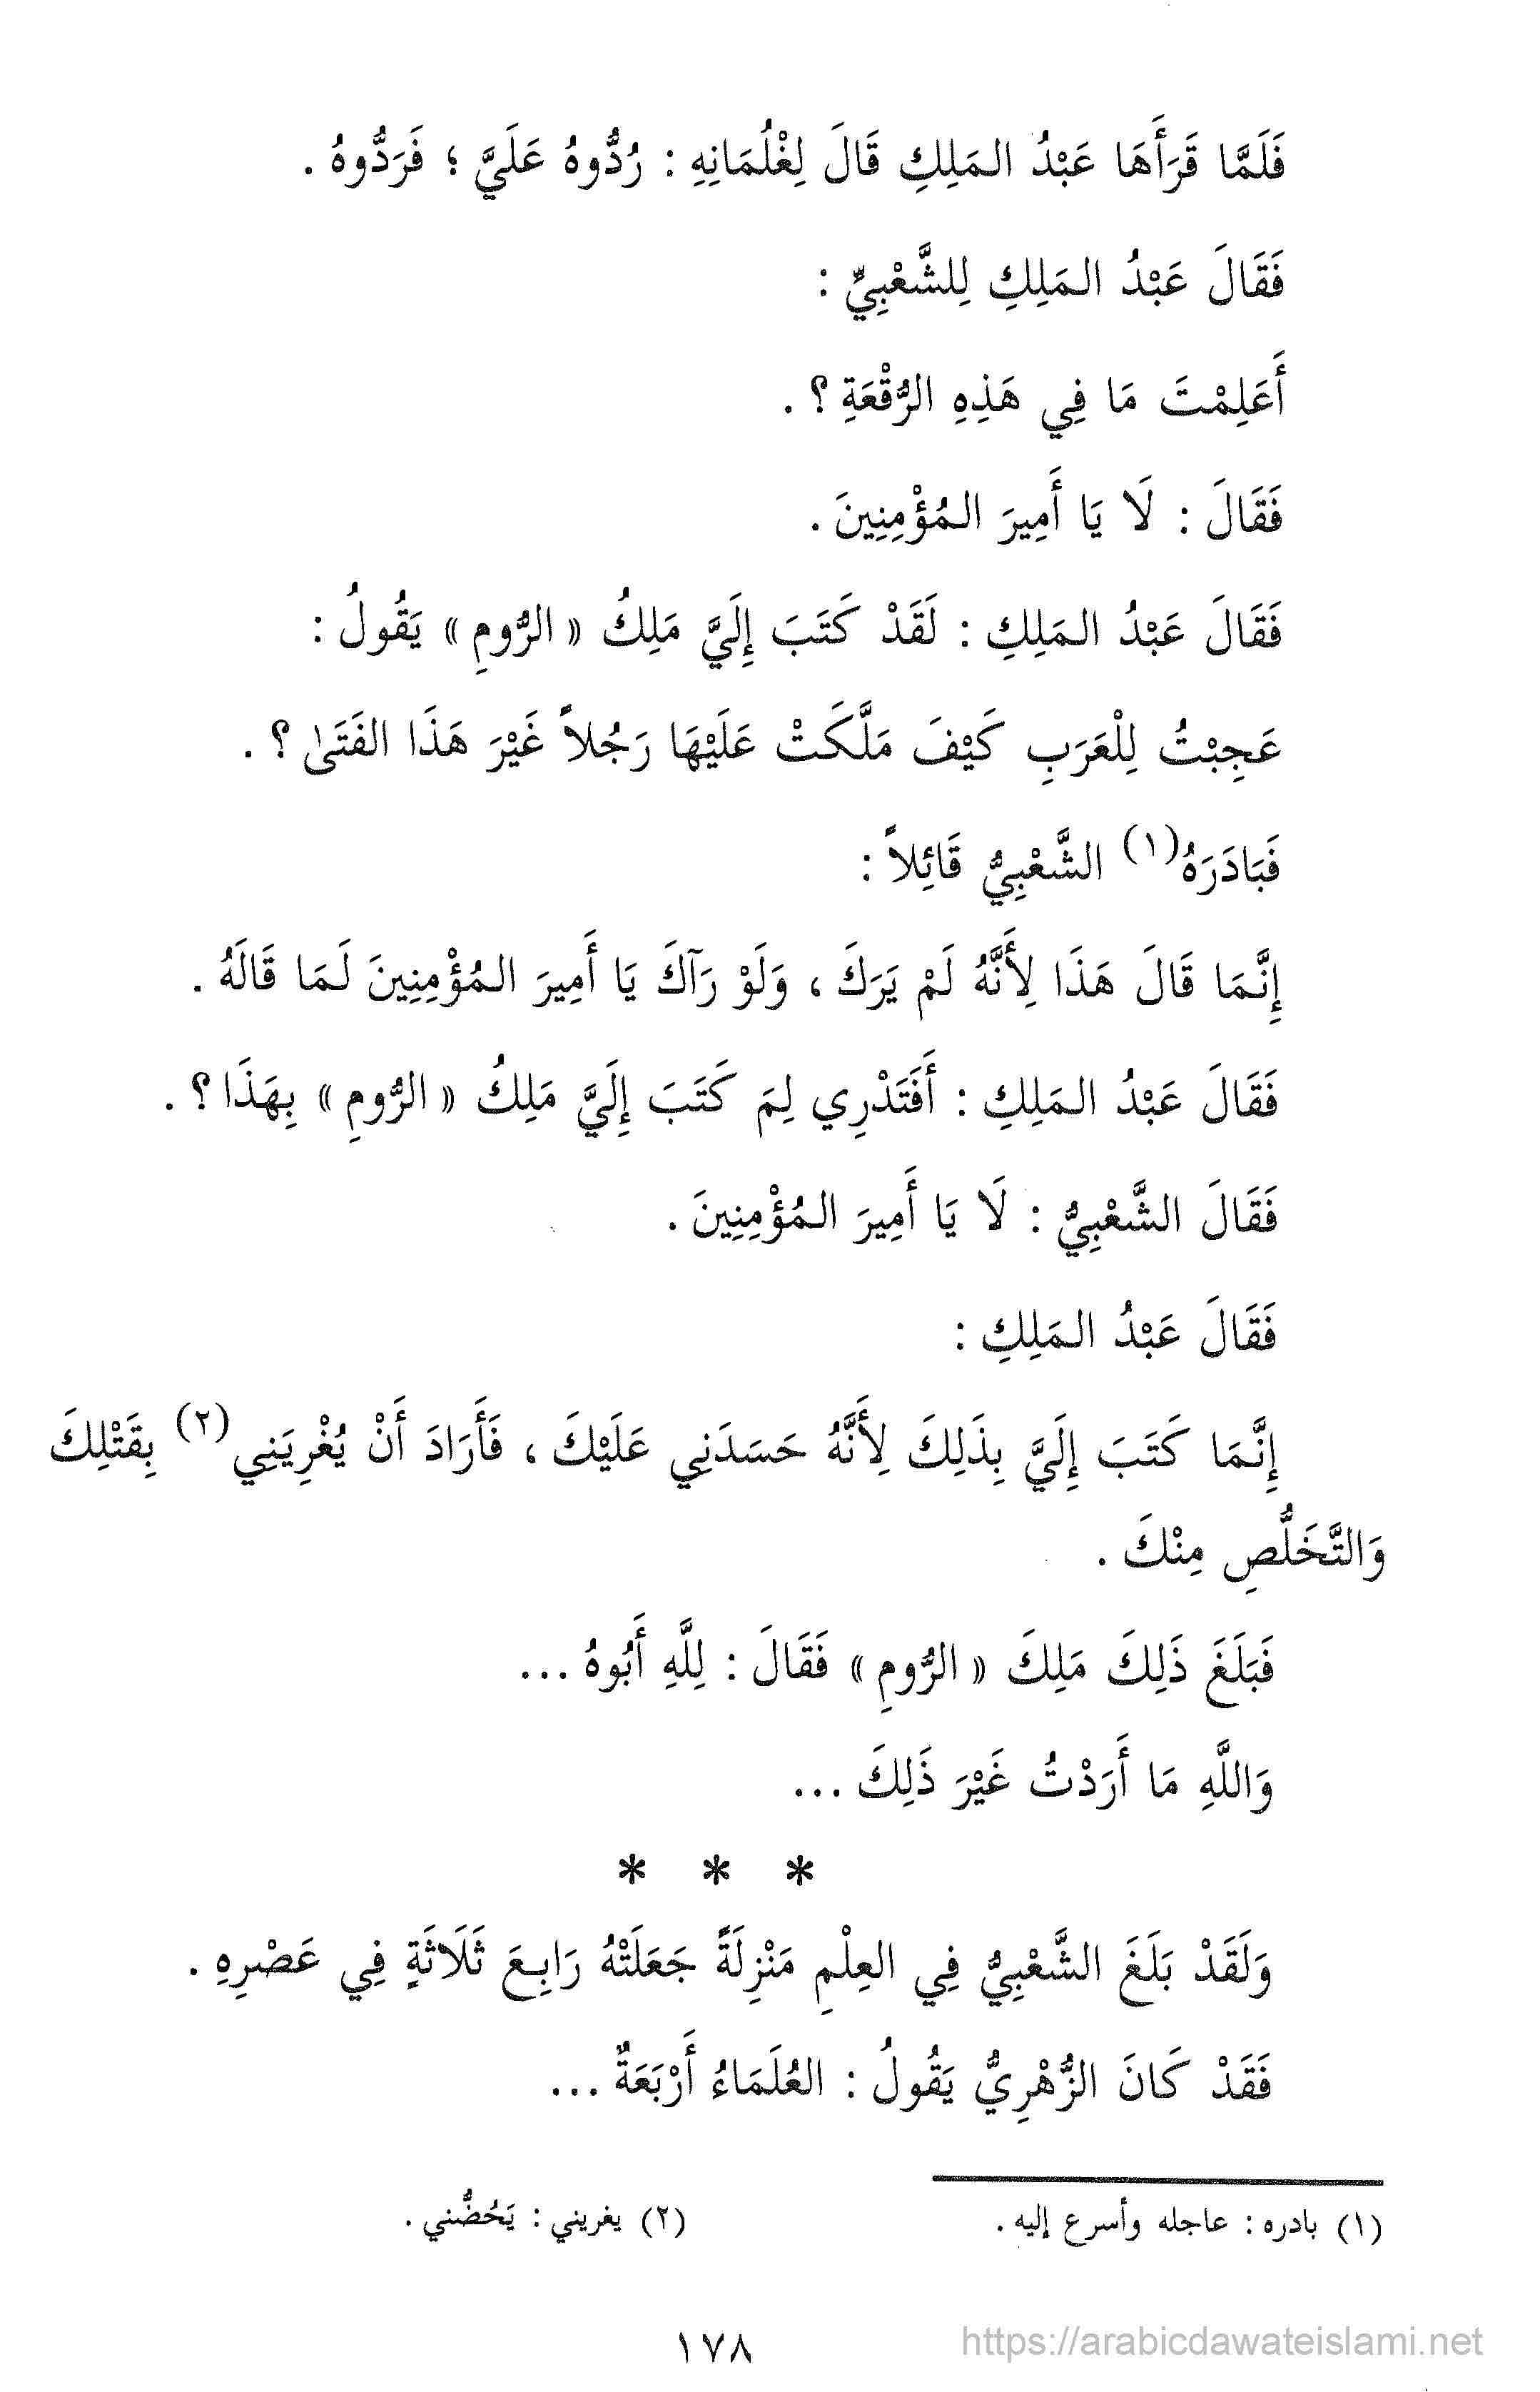 فَلَمَّا قَرَأَهَا عَبْدُ المَلِكِ قَالَ لِغْلُمَانِهِ : رُدُّوهُ عَلَيَّ ؛ فَرَدُّوهُ .
فَقَالَ عَبْدُ المَلِكِ لِلشَّعْبِيِّ :
أَعَلِمْتَ مَا فِي هَذِهِ الرُّقْعَةِ ؟ .
فَقَالَ : لَا يَا أَمِيرَ المُؤْمِنِينَ .
فَقَالَ عَبْدُ المَلِكِ : لَقَدْ كَتَبَ إِلَيَّ مَلِكُ « الرُّومِ » يَقُولُ :
عَجِبْتُ لِلْعَرَبِ كَيْفَ مَلَّكَتْ عَلَيْهَا رَجُلاً غَيْرَ هَذَا الفَتَىٰ ؟ .
فَبَادَرَهُ (١) الشَّعْبِيُّ قَائِلاً :
إِنَّمَا قَالَ هَذَا لِأَنَّهُ لَمْ يَرَكَ ، وَلَوْ رَآكَ يَا أَمِيرَ المُؤْمِنِينَ لَمَا قَالَهُ .
فَقَالَ عَبْدُ المَلِكِ : أَفَتَدْرِي لِمَ كَتَبَ إِلَيَّ مَلِكُ « الرُّومِ » بِهَذَا ؟ .
فَقَالَ الشَّعْبِيُّ : لَا يَا أَمِيرَ المُؤْمِنِينَ .
فَقَالَ عَبْدُ المَلِكِ :
إِنَّمَا كَتَبَ إِلَيَّ بِذَلِكَ لِأَنَّهُ حَسَدَنِي عَلَيْكَ ، فَأَرَادَ أَنْ يُغْرِيَنِي (٢) بِقَتْلِكَ
وَالتَّخَلُّصِ مِنْكَ .
فَبَلَغَ ذَلِكَ مَلِكَ « الرُّومِ » فَقَالَ : لِلَّهِ أَبُوهُ ...
وَاللَّهِ مَا أَرَدْتُ غَيْرَ ذَلِكَ ...
* * *
وَلَقَدْ بَلَغَ الشَّعْبِيُّ فِي العِلْمِ مَنْزِلَةً جَعَلَتْهُ رَابِعَ ثَلَاثَةٍ فِي عَصْرِهِ .
فَقَدْ كَانَ الزُّهْرِيُّ يَقُولُ : العُلَمَاءُ أَرْبَعَةٌ ...
(١) بادره : عاجله وأسرع إليه . (٢) يغريني : يَحُضُّني .
١٧٨
https://arabicdawateislami.net